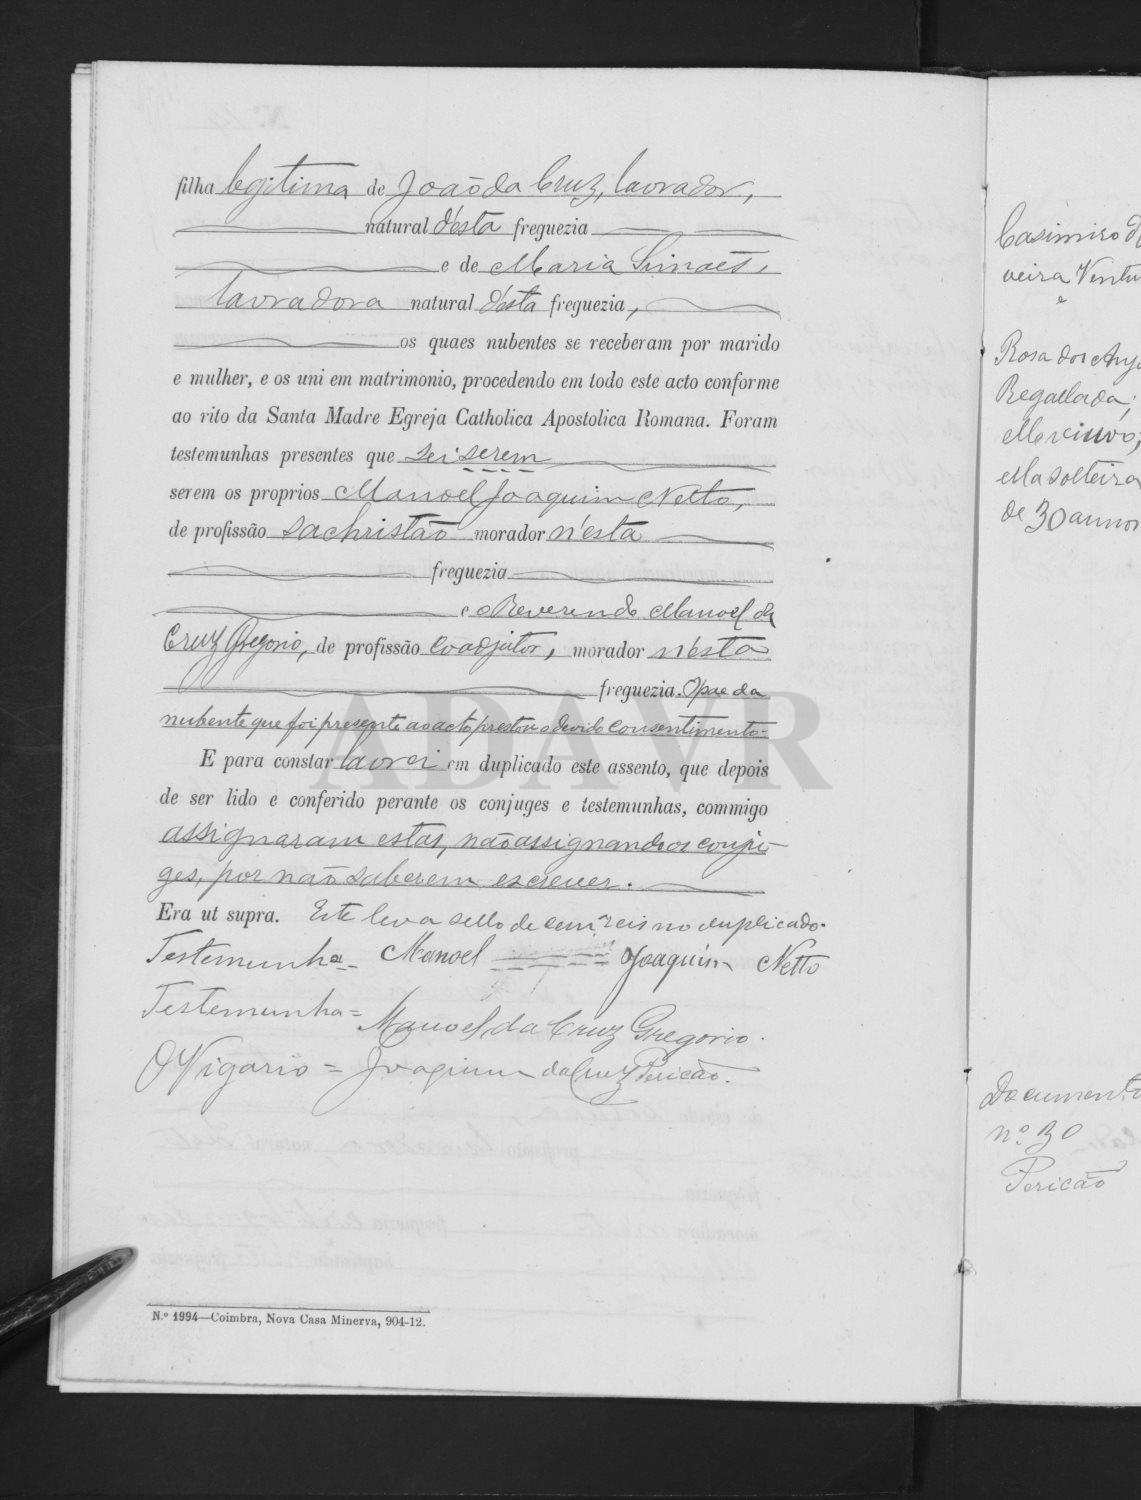 filha legitima de João da Cruz, lavrador,
natural d'esta freguezia
e de Maria Simães,
lavradora natural d'esta freguezia,
os quaes nubentes se receberam por marido
e mulher, e os uni em matrimonio, procedendo em todo este acto conforme
ao rito da Santa Madre Egreja Catholica Apostolica Romana. Foram
testemunhas presentes que sei serem
serem os proprios Manoel Joaquim Netto,
de profissão sachristão morador n'esta
freguezia
e o Reverendo Manoel da
Cruz Gregorio, de profissão Coadjutor, morador n'esta
freguezia. O pae da
nubente que foi presente ao acto prestou o devido consentimento.
E para constar lavrei em duplicado este assento, que depois
de ser lido e conferido perante os conjuges e testemunhas, commigo
assignaram estas, não assignando os conju-
ges, por não saberem escrever.
Era ut supra. Este leva sello de cem reis no duplicado.
Testemunha = Manoel Joaquim Netto
Testemunha = Manoel da Cruz Gregorio.
O Vigario = Joaquim da Cruz Pericão.
Nº 1994—Coimbra, Nova Casa Minerva, 904-12.
ADAVR
Casimiro d'
veira Ventu
e
Rosa dos Anj
Regallada;
elle viuvo,
ella solteira
de 30 annos
Documento
nº 30
Pericão